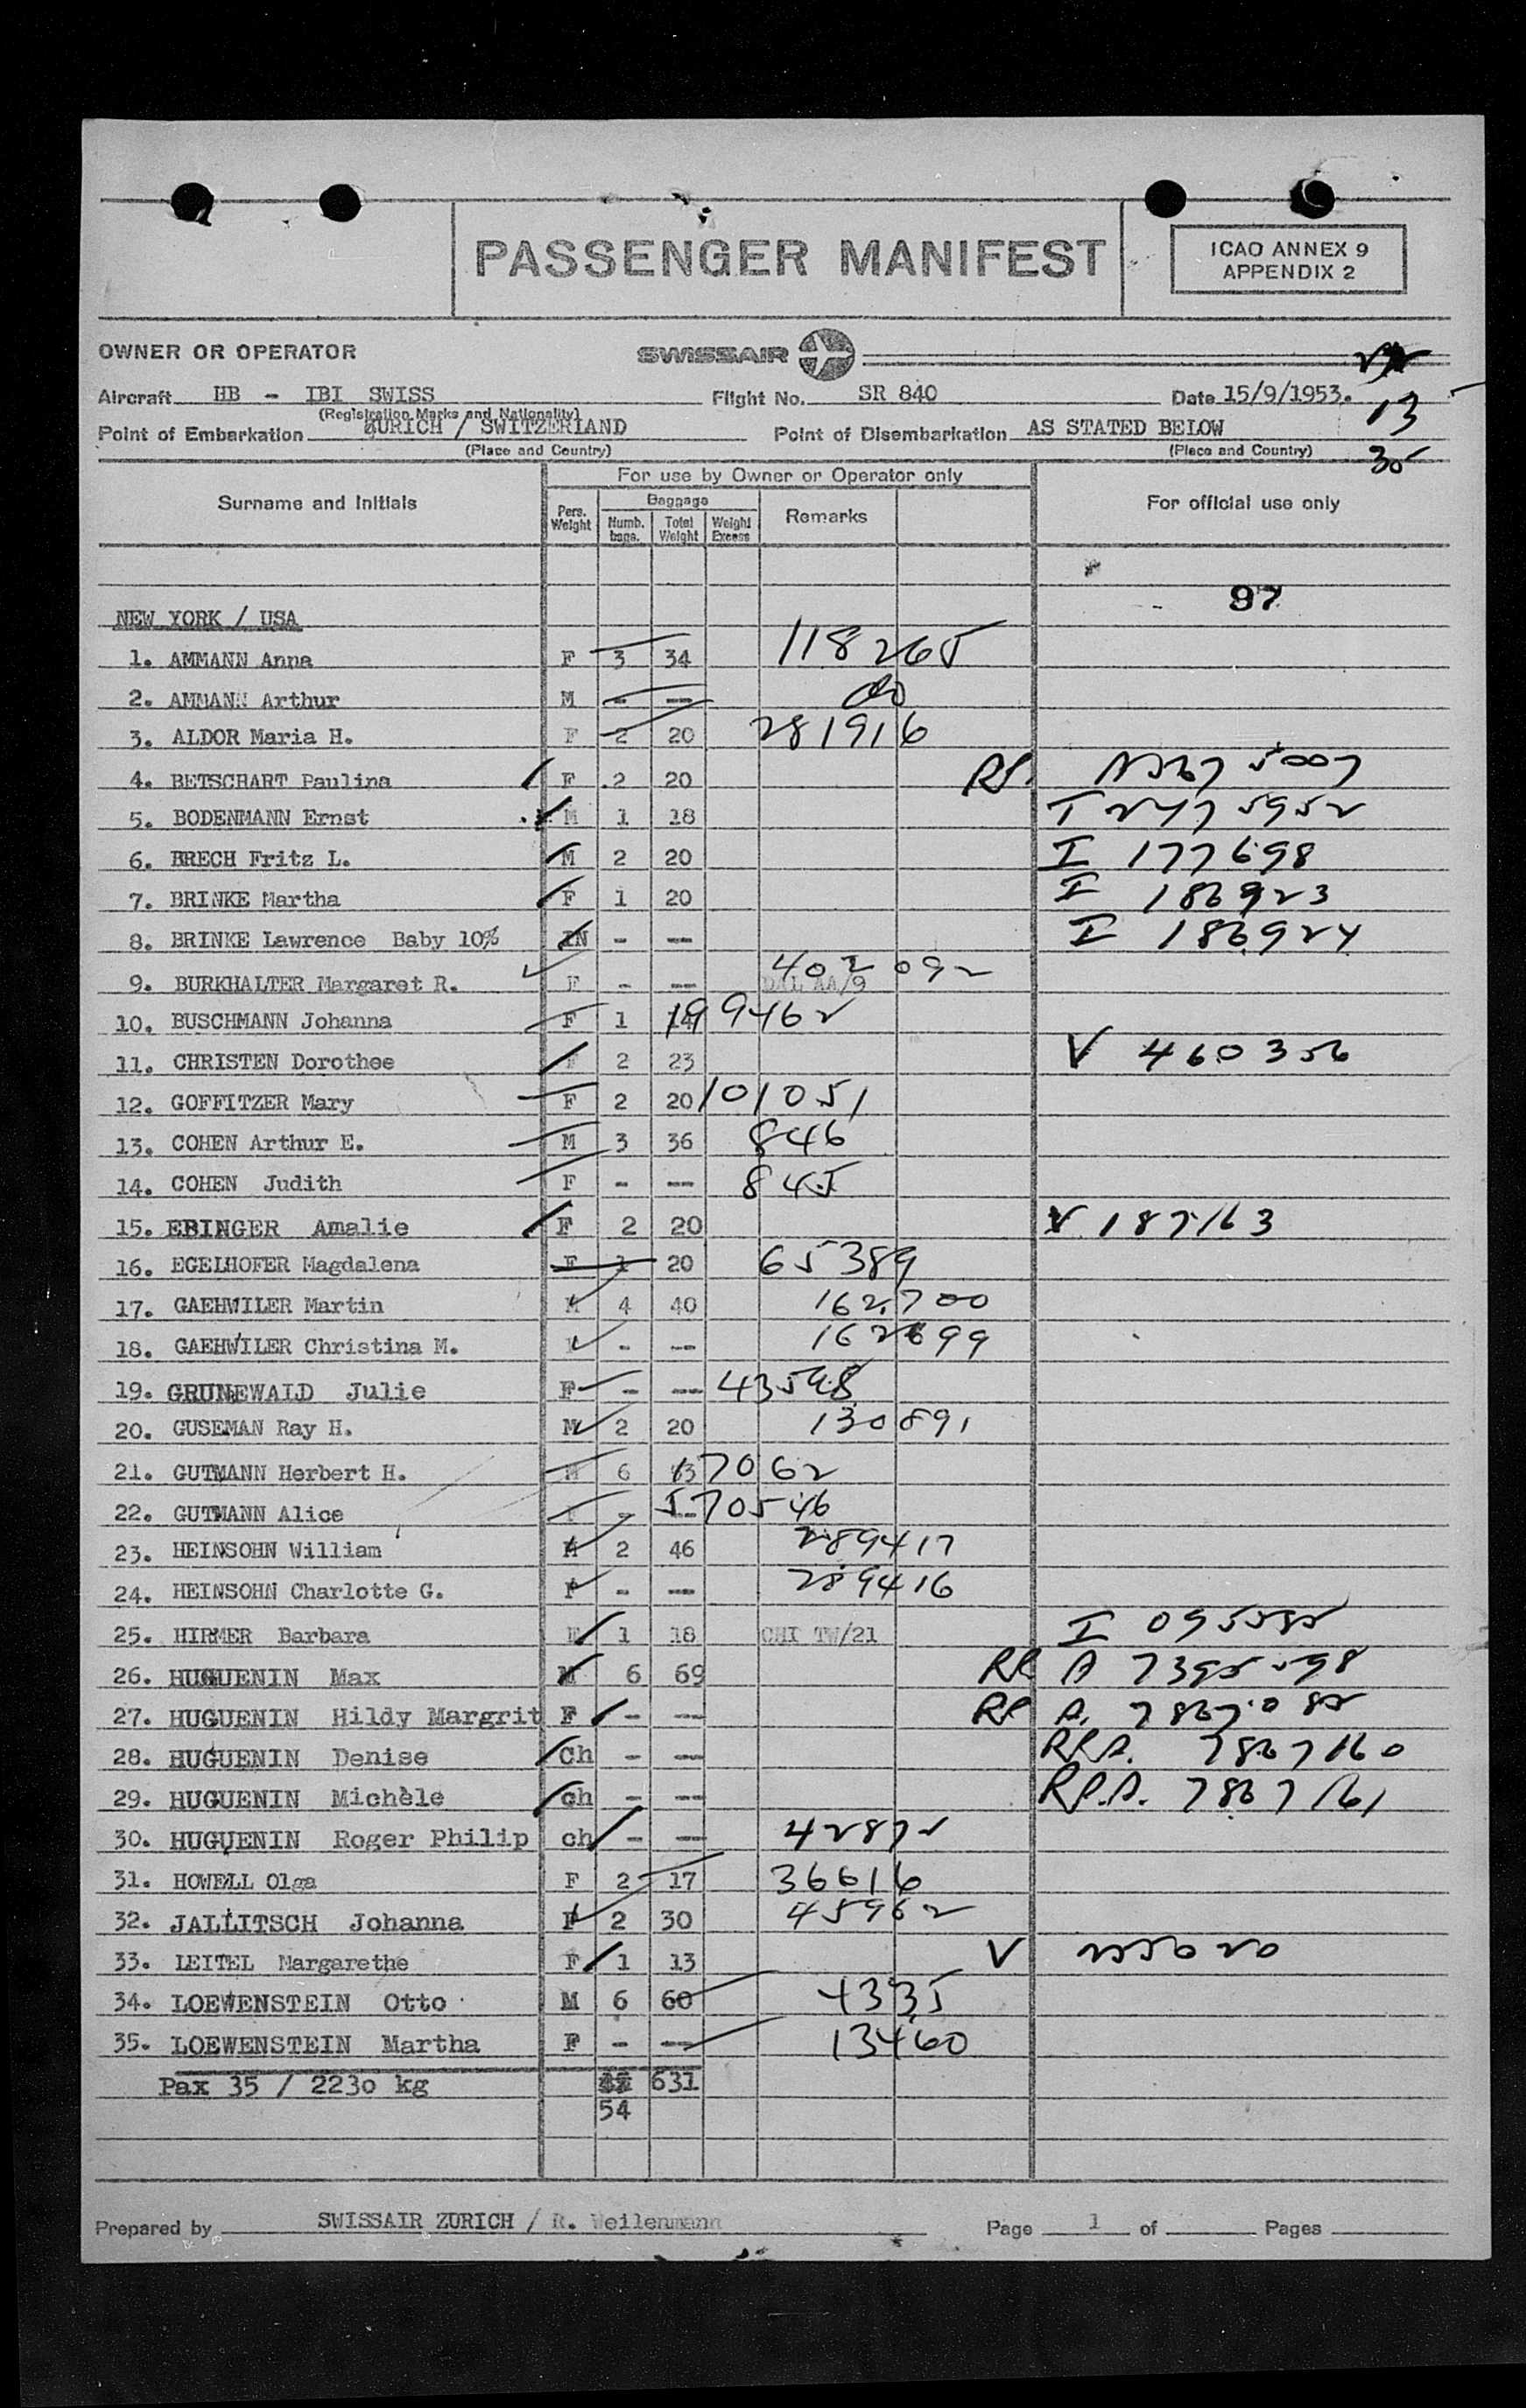 PASSENGER MANIFEST
ICAO ANNEX 9
APPENDIX 2
OWNER OR OPERATOR SWISSAIR
Aircraft HB - IBI SWISS Flight No. SR 840 Date 15/9/1953.
(Registration Marks and Nationality)
13
Point of Embarkation ZURICH / SWITZERLAND Point of Disembarkation AS STATED BELOW
(Place and Country) (Place and Country) 35
For use by Owner or Operator only
Surname and Initials Pers. Weight Baggage Numb. bags. Total Weight Weight Excess Remarks For official use only
97
NEW YORK / USA
1. AMMANN Anna F 3 34 118265
2. AMMANN Arthur M - --
3. ALDOR Maria H. F 2 20 281916
4. BETSCHART Paulina F 2 20
5. BODENMANN Ernst M 1 18
6. BRECH Fritz L. M 2 20 I 177698
7. BRINKE Martha F 1 20 I 186923
8. BRINKE Lawrence Baby 10% IN - -- I 186924
9. BURKHALTER Margaret R. F - -- DAL AA/9 402092
10. BUSCHMANN Johanna F 1 14 199462
11. CHRISTEN Dorothee F 2 23 V 460356
12. GOFFITZER Mary F 2 20 101051
13. COHEN Arthur E. M 3 36 846
14. COHEN Judith F - -- 845
15. EBINGER Amalie F 2 20 V 187163
16. EGELHOFER Magdalena F 1 20 65389
17. GAEHWILER Martin M 4 40 162700
18. GAEHWILER Christina M. F - -- 162699
19. GRUNEWALD Julie F - -- 43598
20. GUSEMAN Ray H. M 2 20 130891
21. GUTMANN Herbert H. M 6 17062
22. GUTMANN Alice F - -- 570546
23. HEINSOHN William M 2 46 289417
24. HEINSOHN Charlotte G. F - -- 289416
25. HIRMER Barbara F 1 18 CHI TW/21
26. HUGUENIN Max M 6 69
27. HUGUENIN Hildy Margrit F - --
28. HUGUENIN Denise Ch - -- RP.A. 7867160
29. HUGUENIN Michèle ch - -- RP.A. 7867161
30. HUGUENIN Roger Philip ch - -- 42872
31. HOWELL Olga F 2 17 36616
32. JALLITSCH Johanna F 2 30 45962
33. LEITEL Margarethe F 1 13 V
34. LOEWENSTEIN Otto M 6 60 4335
35. LOEWENSTEIN Martha F - -- 13460
Pax 35 / 2230 kg 631
54
Prepared by SWISSAIR ZURICH / R. Weilenmann Page 1 of Pages